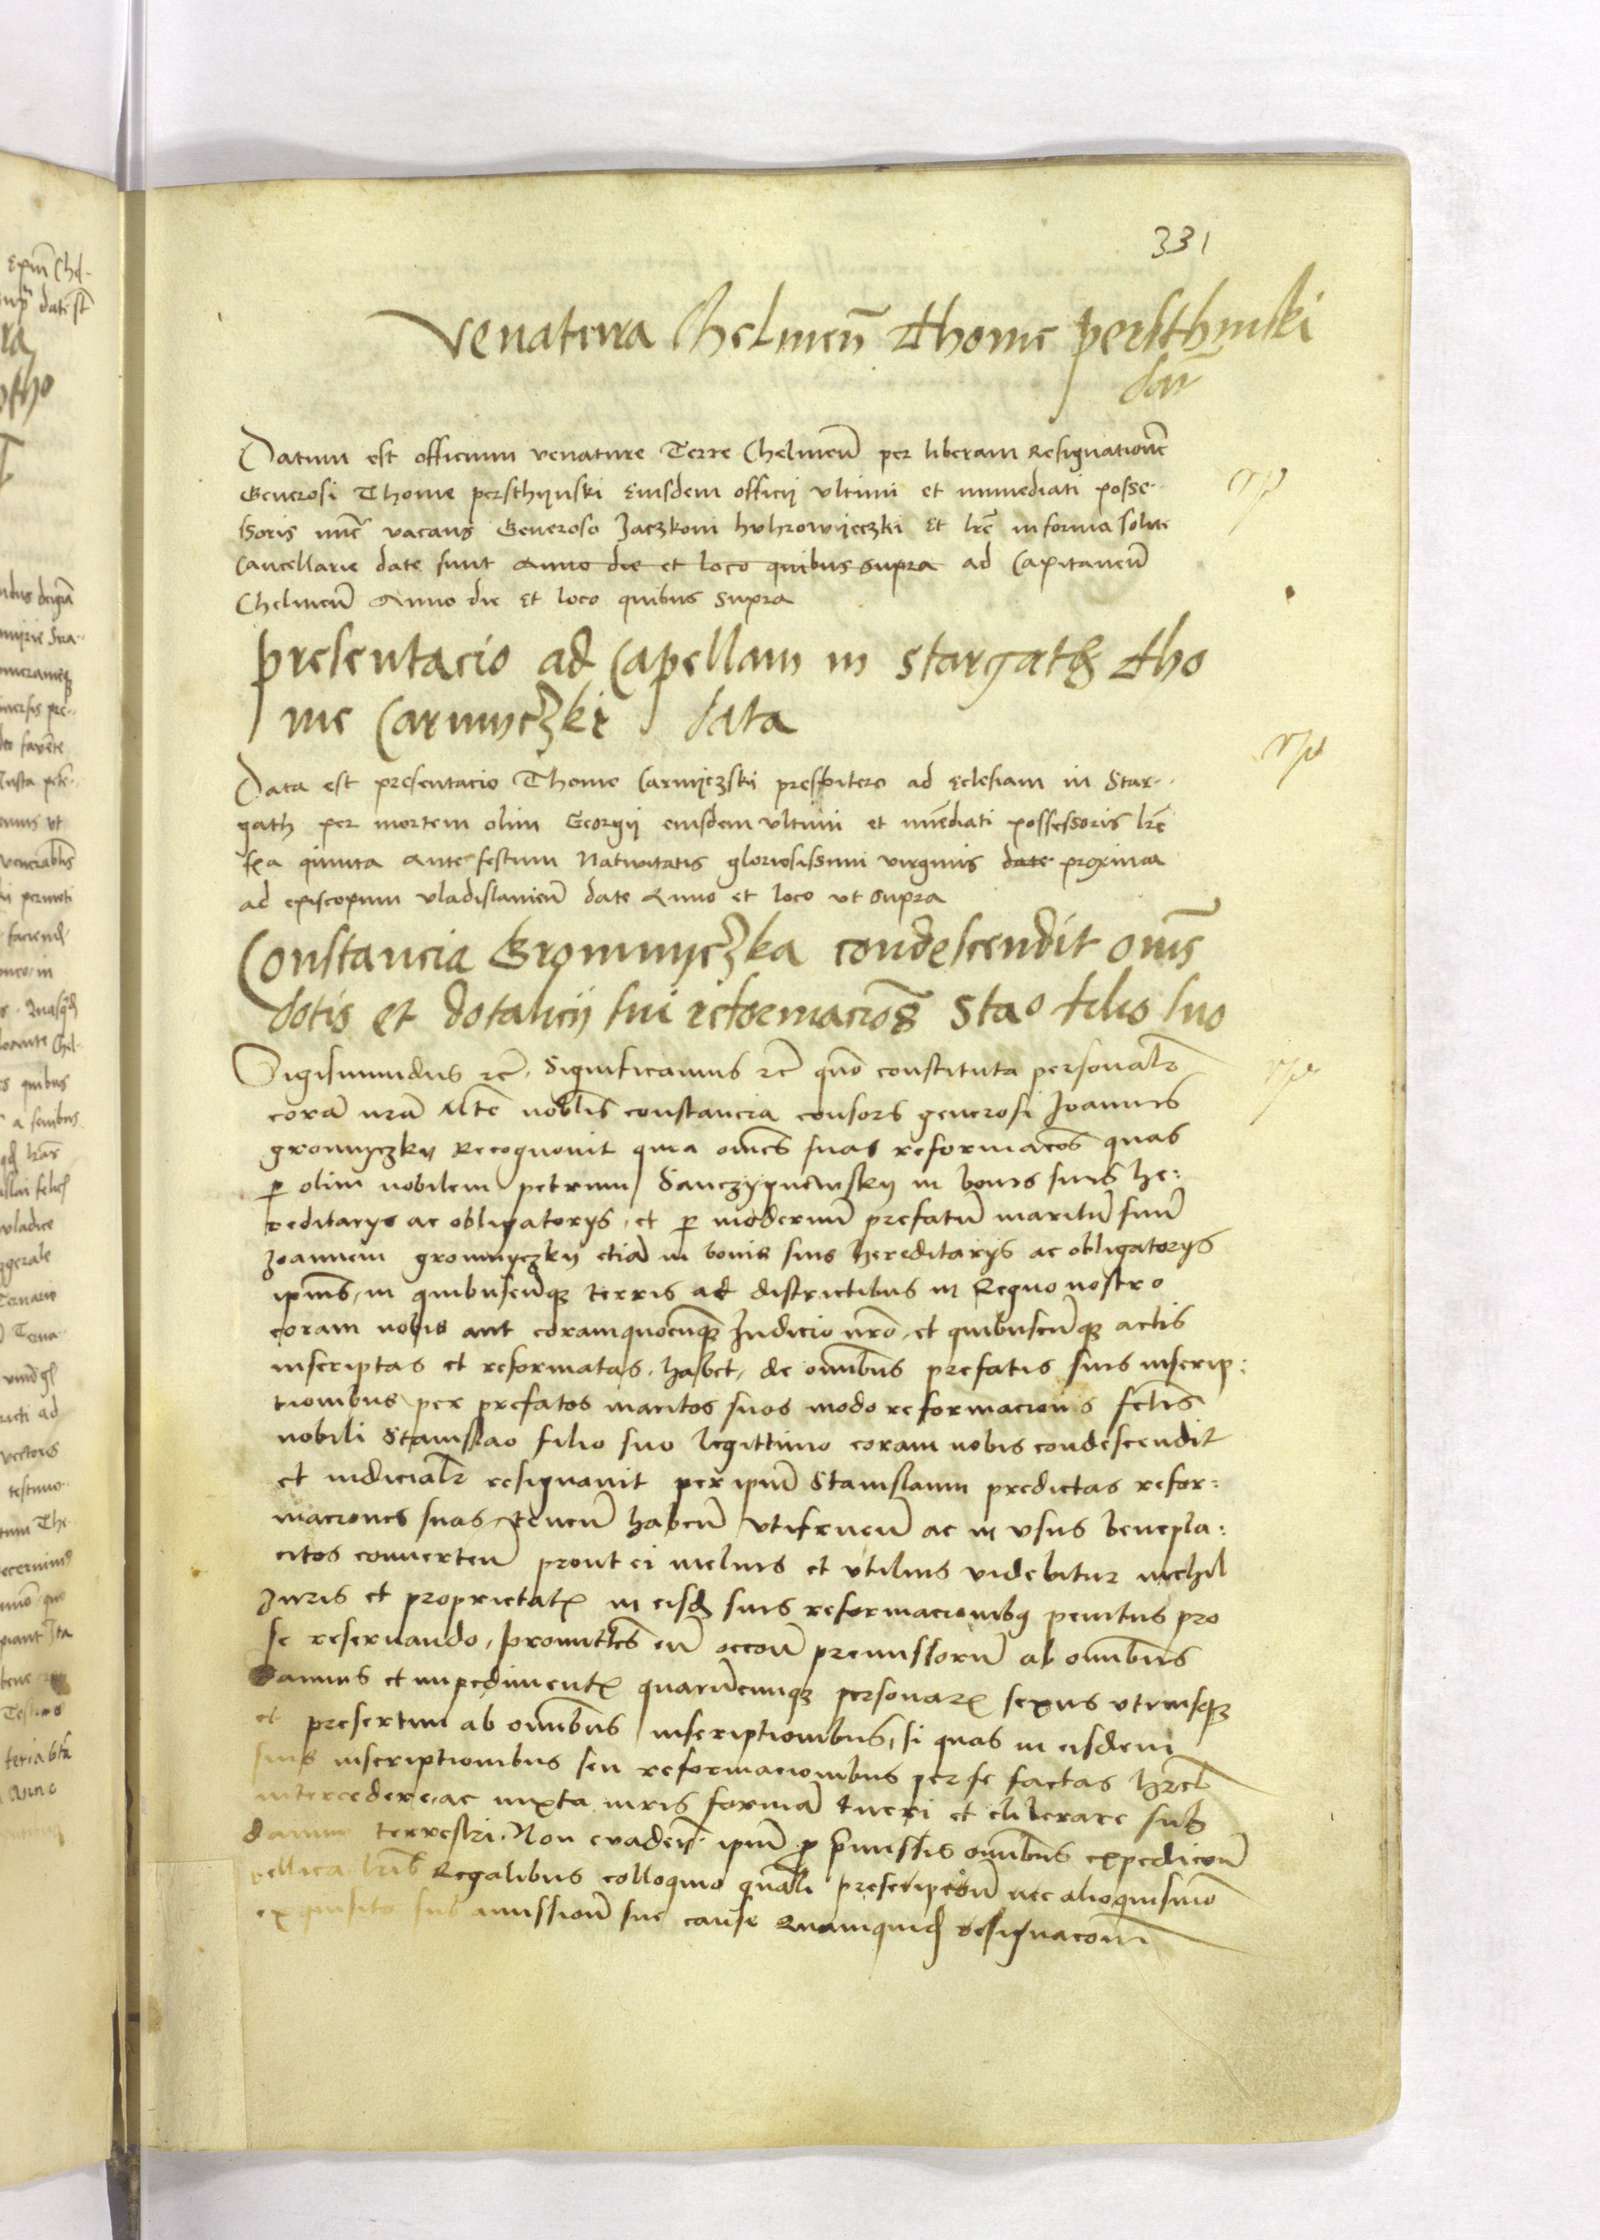 331
Venatura Chelmeñ Thome persthinski
dat̃
Datum est officium venature Terre Chelmeñ per liberam Resignationẽ
Generosi Thome persthijnski Eiusdem officij vltimi et immediati posse-
ssoris nũc vacans Generoso Jaczkoni huhrowijeczki Et lr̃e in forma solite
Cancellarie date sunt Anno die et loco quibus supra ad Capitaneũ
Chelmeñ Anno die Et loco quibus supra
presentacio ad Capellam in stargath tho
me Carmijczki data
Data est presentacio Thome Carmijczski presbitero ad Eclesiam in Star-
gath per mortem olim Georgij eiusdem vltimi et im̃ediati possessoris lr̃e
fx̃a quinta Ante festum Natiuitatis gloriosissimi virginis date proxima
ad episcopum vladislauieñ date Anno et loco vt supra
Constancia Gromnijczka condescendit om̃s
dotis et dotalicij sui reformaciões Stao filio suo
Sigismundus rc̃. Significamus rc̃ quõ constituta personalr̃
corã nrã Mte nobl̃is constancia consors generosi Joannis
gromnyczky Recognouit quia om̃es suas reformacões quas
p olim nobilem petrum Sanczygnewsky in bonis suis he:
reditarys ac obligatorys, et p modernũ prefatũ maritũ suũ
Joannem gromnyczky etiã in bonis suis hereditarys ac obligatorys
ip̃ius, in quibuscũq terris ac districtibus in Regno nostro
coram nobis aut coramquocũq Judicio nrõ, et quibuscũq actis
inscriptas et reformatas habet, de om̃ibus prefatis suis inscrip:
tionibus per prefatos maritos suos modo reformacionis fctis
nobili Stanislao filio suo legittimo coram nobis condescendit
et iudicialr̃ resignauit per ip̃m Stanislaum predictas refor:
maciones suas, teneñ habeñ vtifrueñ ac in vsus benepla:
citos conuerteñ prout ei melius et vtilius videbitur nichil
Juris et proprietatẽ in eisd suis reformacionibq penitus pro
se reseruando, promittẽs eũ occoñ premissorũ ab om̃ibus
damnis et impedimentẽ quarũcunqз personarẽ sexus vtriusqз
et presertim ab om̃ibus inscriptionibus, si quas in eisdem
suis inscriptionibus seu reformacionibus per se factas hr̃et
intercedere ac iuxta iuris formã tueri et eliberare sub
damno terrestri. Non euadeñ ip̃m p p̃missis om̃ibus expedicoñ
bellica lrĩs Regalibus colloquio gñali prescripcoñ nec alioquisuiõ
exquisito sub amissioñ sue cause Quamquid resignacoñ